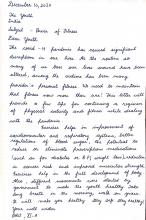 December 10, 2020
The Youth
India
Subject - Power of Fitness
Dear Youth
The covid-19 pandemic has caused significant
disruption in our lives. As the routine as
many of us does or has known have been
altered, among the victims has been many
provider's personal fitness. We need to maintain
that fitness now more than ever. This letter will
provide a few tips for continuing a regimen
of physical activity and fitness while dealing
with the pandemic.
Exercise helps in improvement of
cardiovascular and respiratory system, better
regulation of blood sugar, the potential to
reduce or eliminate prescription medication
(such as for diabetes or B.P) weight loss, reduction
in cancer risk and improved immune strength.
Exercise helps in the full development of body.
Many different movements were started by
government to make the youth healthy. Take
deep breath in the morning, walk in the
It will make you healthy. Stay safe, Stay healthy
Your well wisher
XI-A